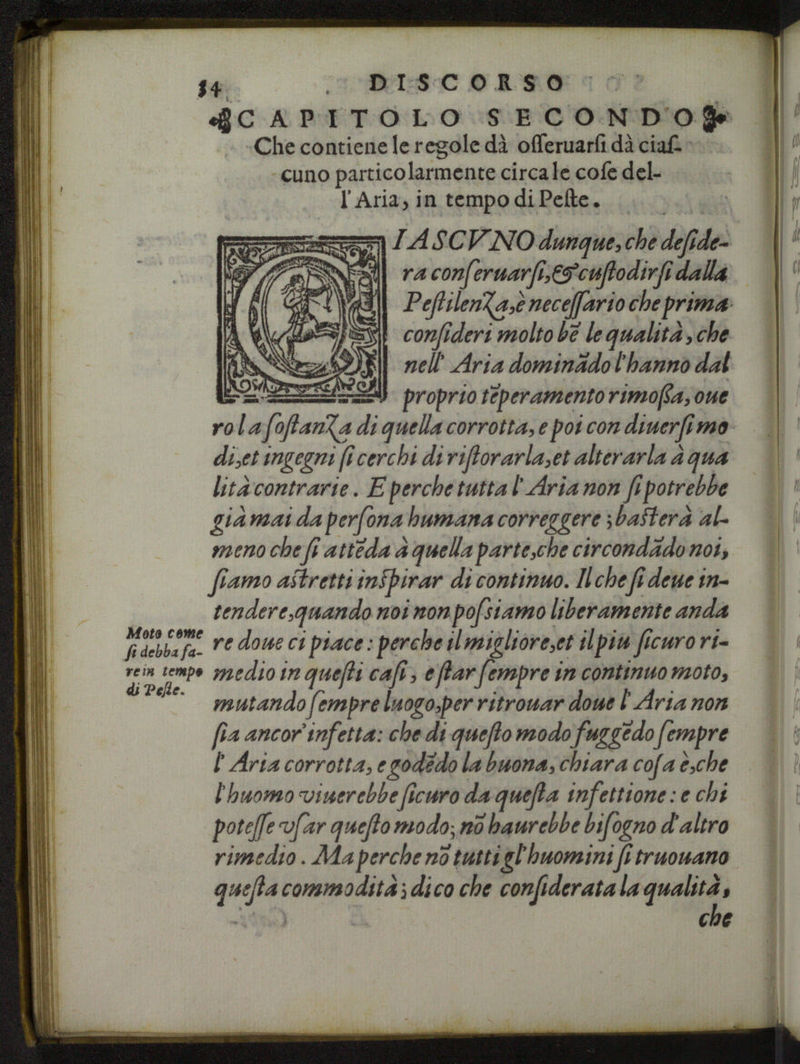 14 DISCORSO
CAPITOLO SECONDO
Che contiene le regole dà osseruarsi dà ciaſ-
cuno particolarmente circa le coſe del-
l'Aria, in tempo di Peſte.
CIASCVNO dunque, che deſide-
ra conſeruarſi, & cuſtodirſi dalla
Peſtilenza, è neceſſario che prima
conſideri molto bē le qualità, che
nell' Aria dominādo l'hanno dal
proprio tēperamento rimoſſa, oue
ro la ſoſtanza di quella corrotta, e poi con diuerſi mo
di, et ingegni ſi cerchi di riſtorarla, et alterarla à qua
lità contrarie. E perche tutta l'Aria non ſi potrebbe
già mai da perſona humana correggere; baſterà al-
meno che ſi attēda à quella parte, che circondādo noi,
ſiamo aſtretti inſpirar di continuo. Il che ſi deue in-
tendere, quando noi non poſsiamo liberamente anda
re doue ci piace: perche il migliore, et il piu ſicuro ri-
medio in queſti caſi, e ſtar ſempre in continuo moto,
mutando ſempre luogo, per ritrouar doue l'Aria non
ſia ancor' infetta: che di queſto modo fuggēdo ſempre
l'Aria corrotta, e godēdo la buona, chiara coſa è, che
l'huomo viuerebbe ſicuro da queſta infettione: e chi
poteſſe vſar queſto modo; nō haurebbe biſogno d'altro
rimedio. Ma perche nō tutti gl'huomini ſi truouano
queſta commodità; dico che conſiderata la qualità,
che
Moto come
ſi debba fa-
re in tempo
di Peſte.